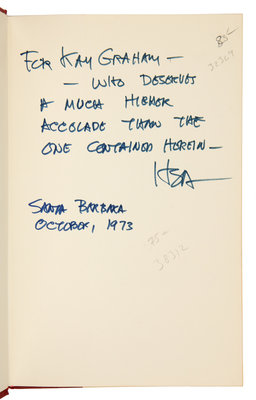 For Kay Graham —
— Who deserves
a much higher
accolade than the
one contained herein —
HSA
Santa Barbara
October, 1973
85-
75-